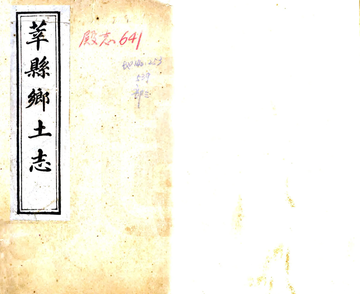 莘縣鄉土志
殿志641